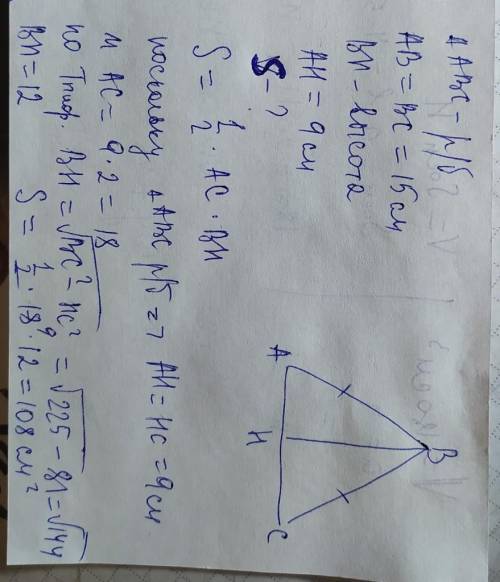 △ ABC - р/б
AB = BC = 15 см
BH - высота
AH = 9 см
S - ?
S = 1/2 · AC · BH
поскольку △ ABC р/б => AH = HC = 9 см
и AC = 9 · 2 = 18
по Т.пиф. BH = √BC² - HC² = √225 - 81 = √144
BH = 12
S = 1/2 · 18 9 · 12 = 108 см²
A
H
B
C